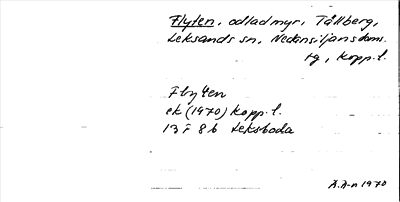 Flyten, odlad myr, Tällberg,
Leksands sn, Nedansiljans doms.
tg, Kopp. l.
Flyten
ek (1970) Kopp. l.
13 F 8 b Leksboda
Å. A-n 1970